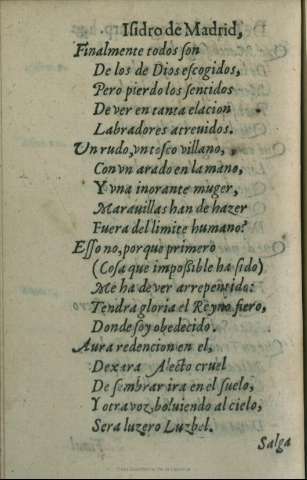 Isidro de Madrid,
Finalmente todos ſon
De los de Dios eſcogidos,
Pero pierdo los ſentidos
De ver en tanta elacion
Labradores atreuidos.
Vn rudo, vn toſco villano,
Con vn arado en la mano,
Y vna inorante muger,
Marauillas han de hazer
Fuera del limite humano?
Eſſo no, porque primero
(Coſa que impoſsible ha ſido)
Me ha de ver arrepentido:
Tendra gloria el Reyno fiero,
Donde ſoy obedecido.
Aura redencion en el,
Dexara Alecto cruel
De ſembrar ira en el ſuelo,
Y otra voz, boluiendo al cielo,
Sera luzero Luzbel.
Salga